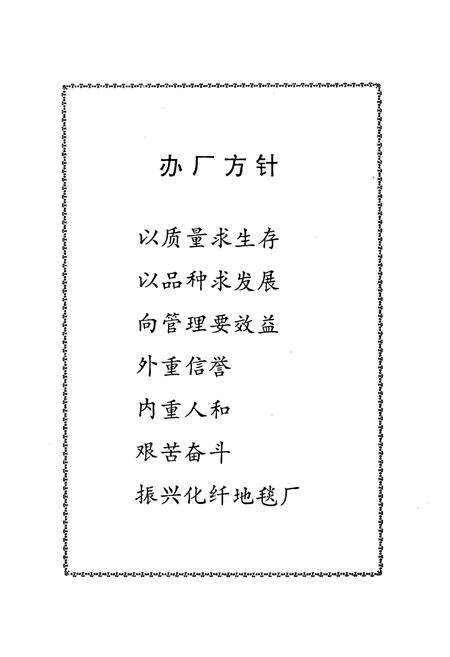 办厂方针
以质量求生存
以品种求发展
向管理要效益
外重信誉
内重人和
艰苦奋斗
振兴化纤地毯厂